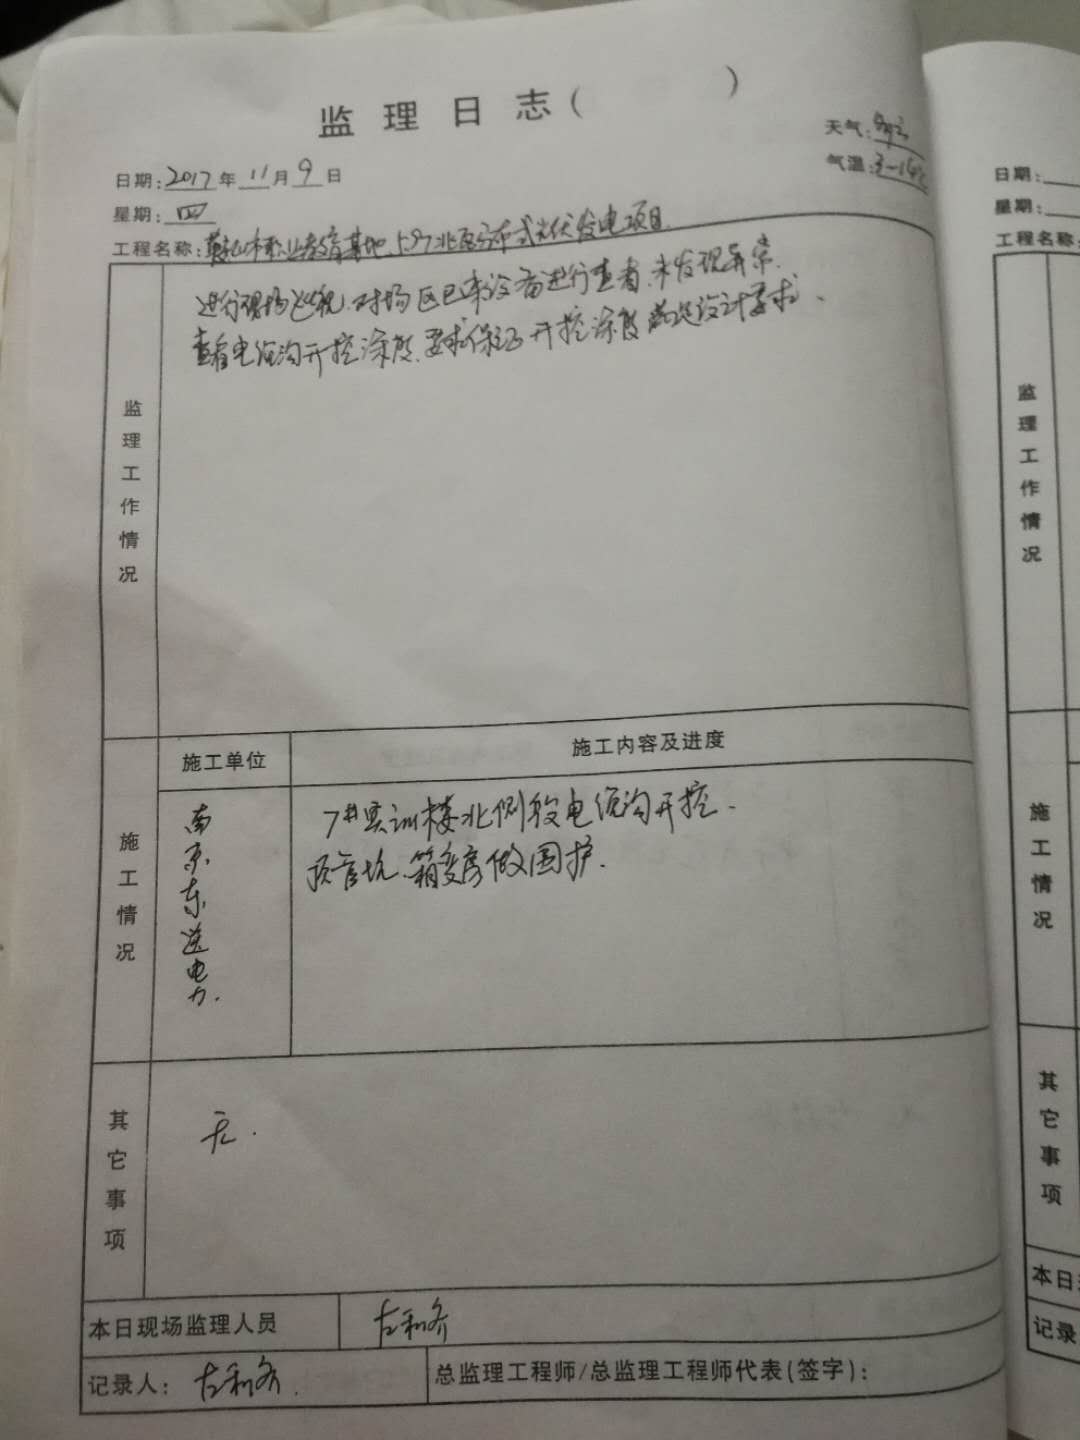 监理日志（ ）
天气：多云
日期：2017年11月9日
气温：3-14℃
星期：四
工程名称：职业教育基地 屋分布式光伏发电项目
监理工作情况
进行现场巡视，对场区已来设备进行查看，未发现异常.
查看电缆沟开挖深度，要求保证开挖深度满足设计要求.
施工情况
施工单位
施工内容及进度
南京东送电力.
7#实训楼北侧段电缆沟开挖.
顶管坑、箱变房做围护.
其它事项
无.
本日现场监理人员
左利齐
记录人：左利齐
总监理工程师/总监理工程师代表(签字)：
日期：
星期：
工程名
监理工作情况
施工工情况
其它事项
本日
记录